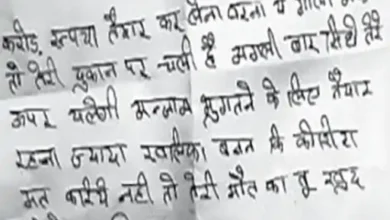 करोड़ रूपया तैयार कर लेना वरना ये गोली
तो तेरी दुकान पर चली है अगली बार सिधे तेरे
ऊपर चलेगी अन्जाम भुगतने के लिए तैयार
रहना ज्यादा स्यालिका बनन कि कोशीश
मत करिये नही तो तेरी मौत का तू खुद